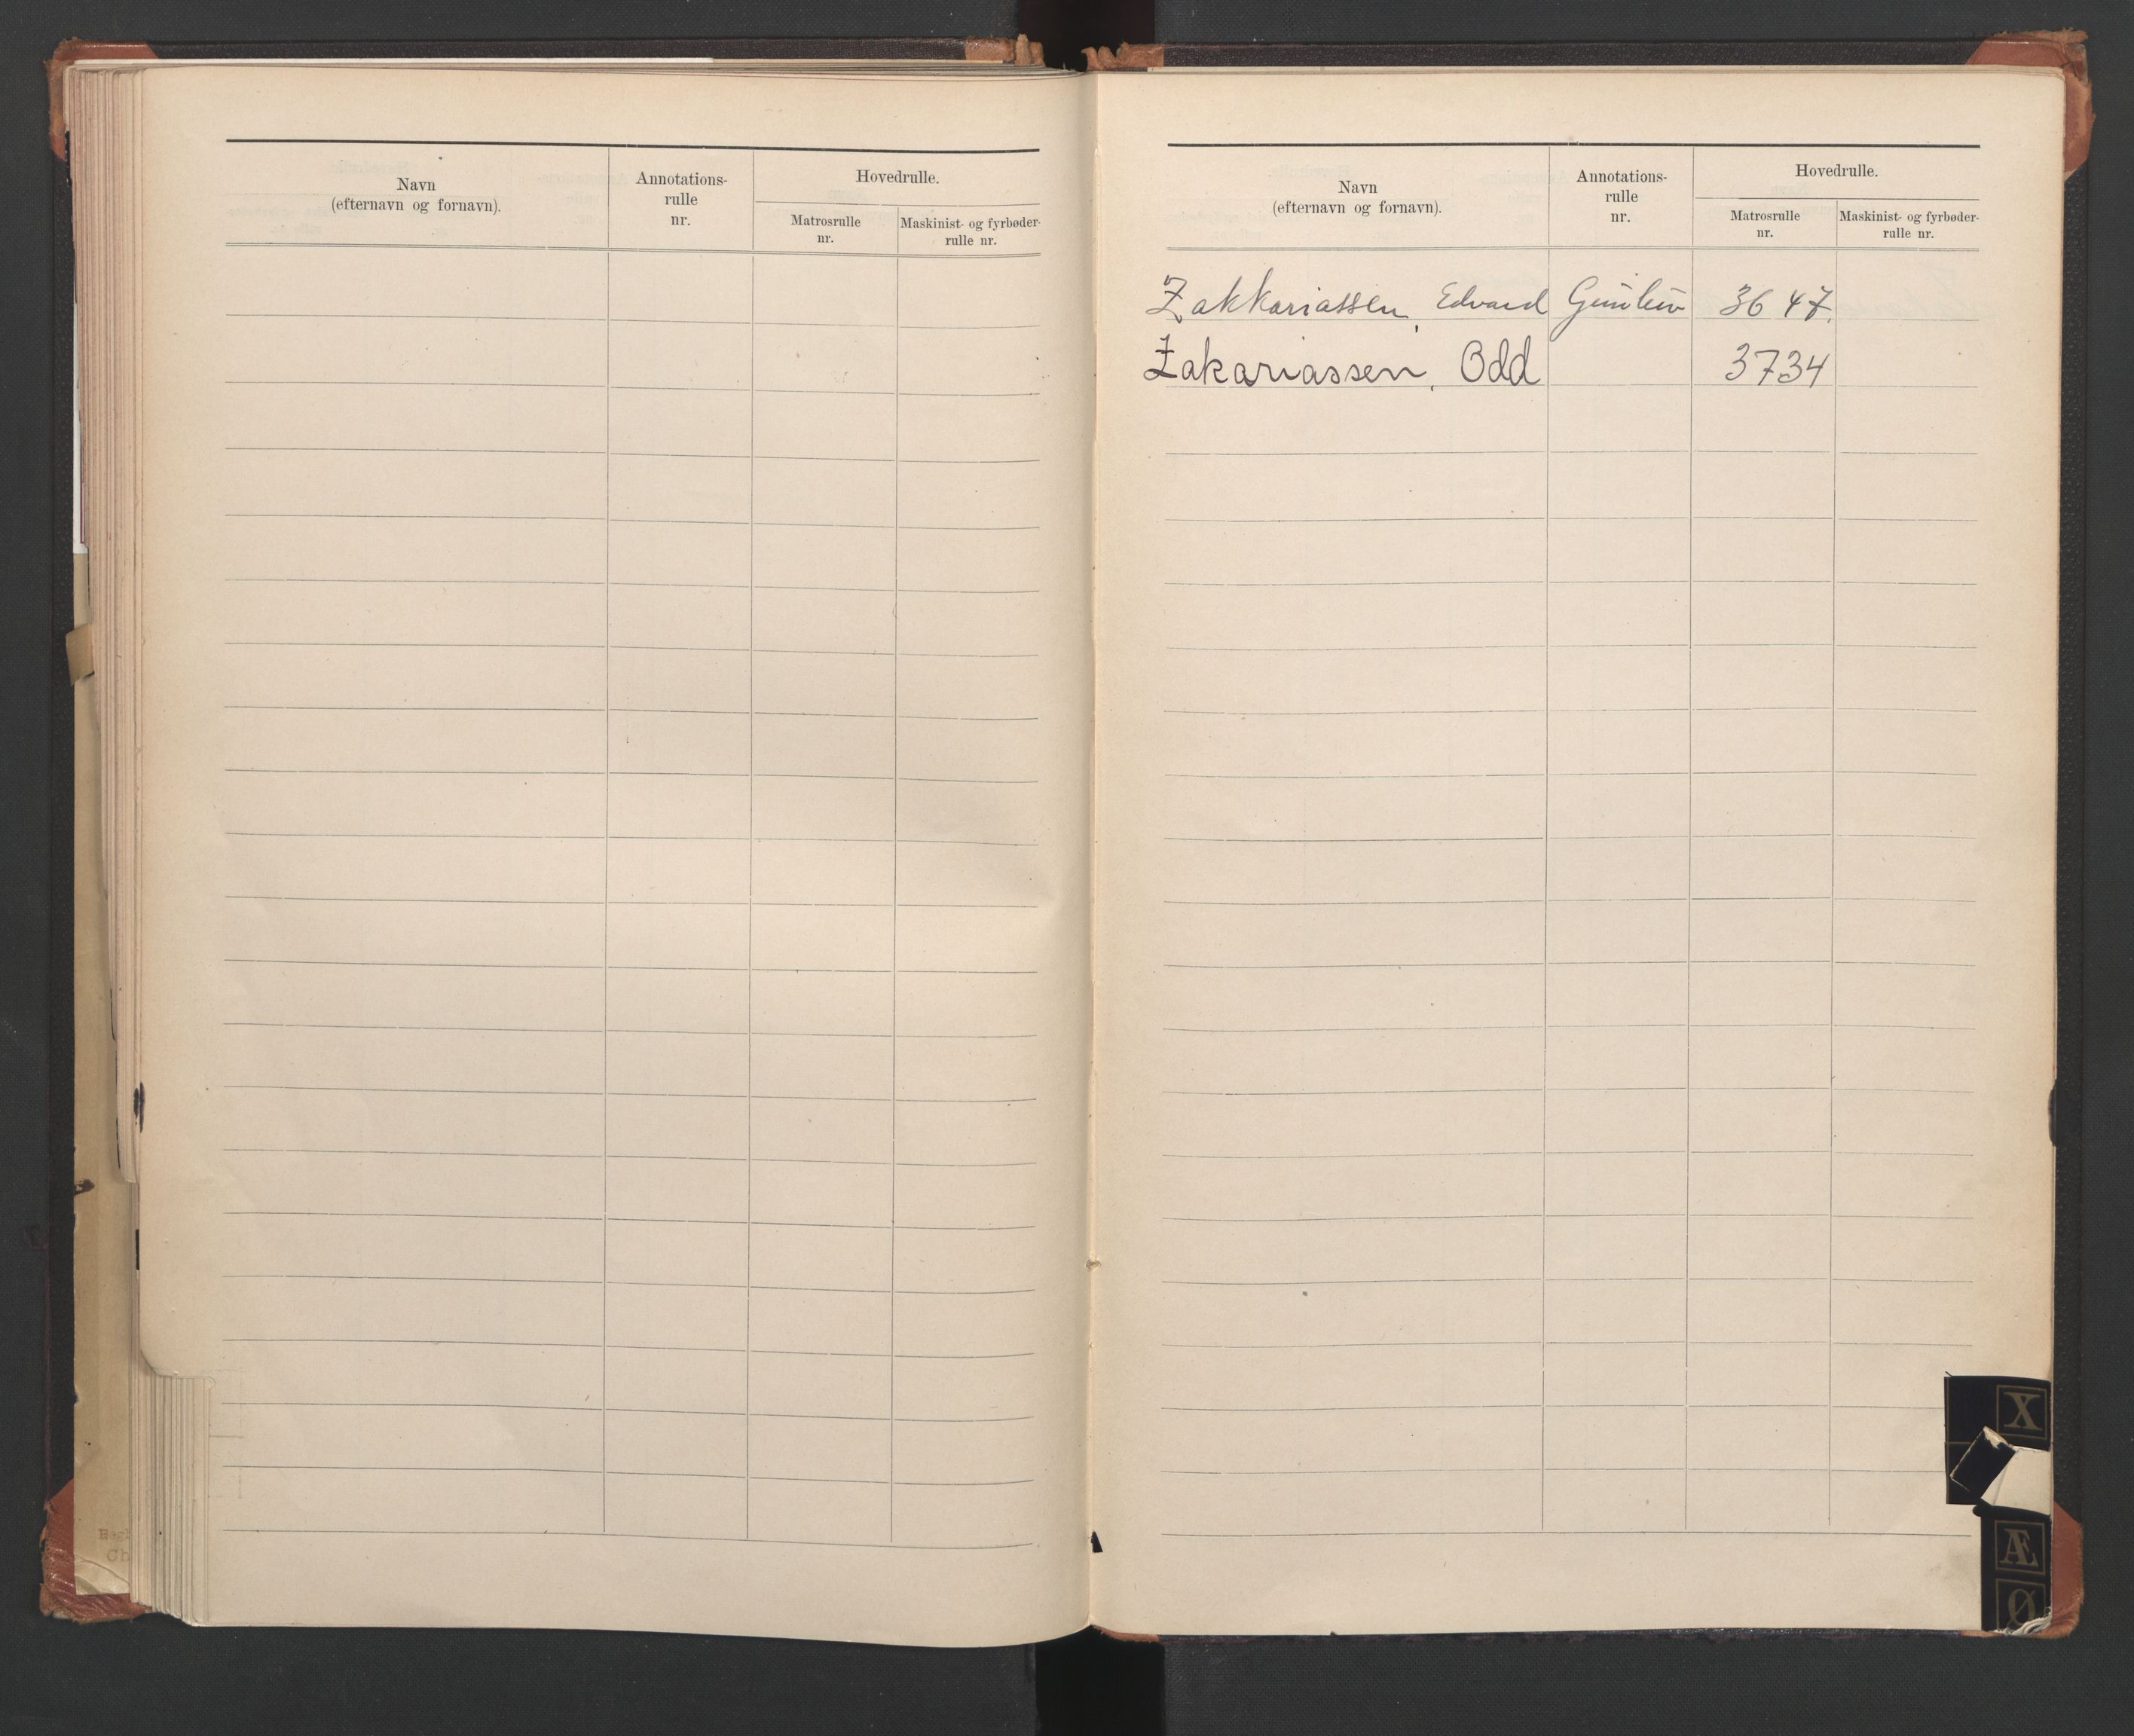 Navn
(efternavn og fornavn).
Annotations-
rulle
nr.
Hovedrulle.
Matrosrulle
nr.
Maskinist- og fyrbøder-
rulle nr.
Navn
(efternavn og fornavn).
Annotations-
rulle
nr.
Hovedrulle.
Matrosrulle
nr.
Maskinist- og fyrbøder-
rulle nr.
Zakkariassen, Edvard 3647.
Zakariassen, Odd 3734
X
Æ
Ø